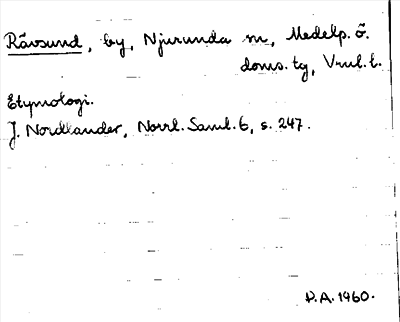 Rävsund, by, Njurunda sn, Medelp. ö.
doms. tg, Vnl. l.
Etymologi.
J. Nordlander, Norrl. Saml. 6, s. 247.
D.A. 1960.